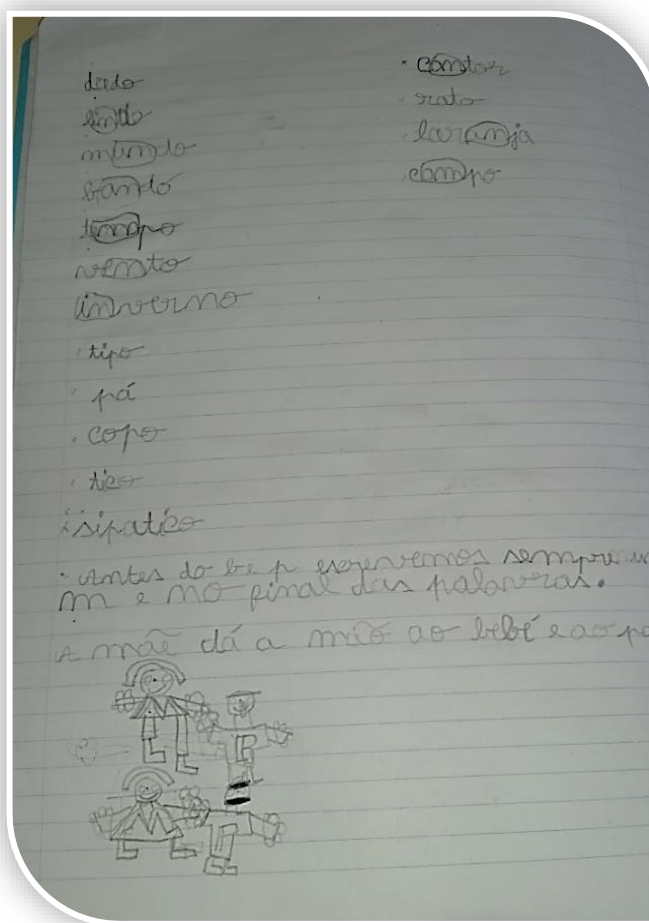 dado
lindo
mundo
bandó
tempo
vento
inverno
tipo
pá
copo
tico
sipatico
contar
rato
laranja
campo
Antes do b e p escrevemos sempre um
m e no pinal das palavras.
A mãe dá a mão ao bebé e ao pa